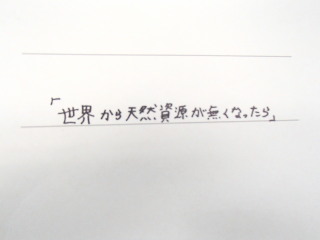 「世界から天然資源が無くなったら」